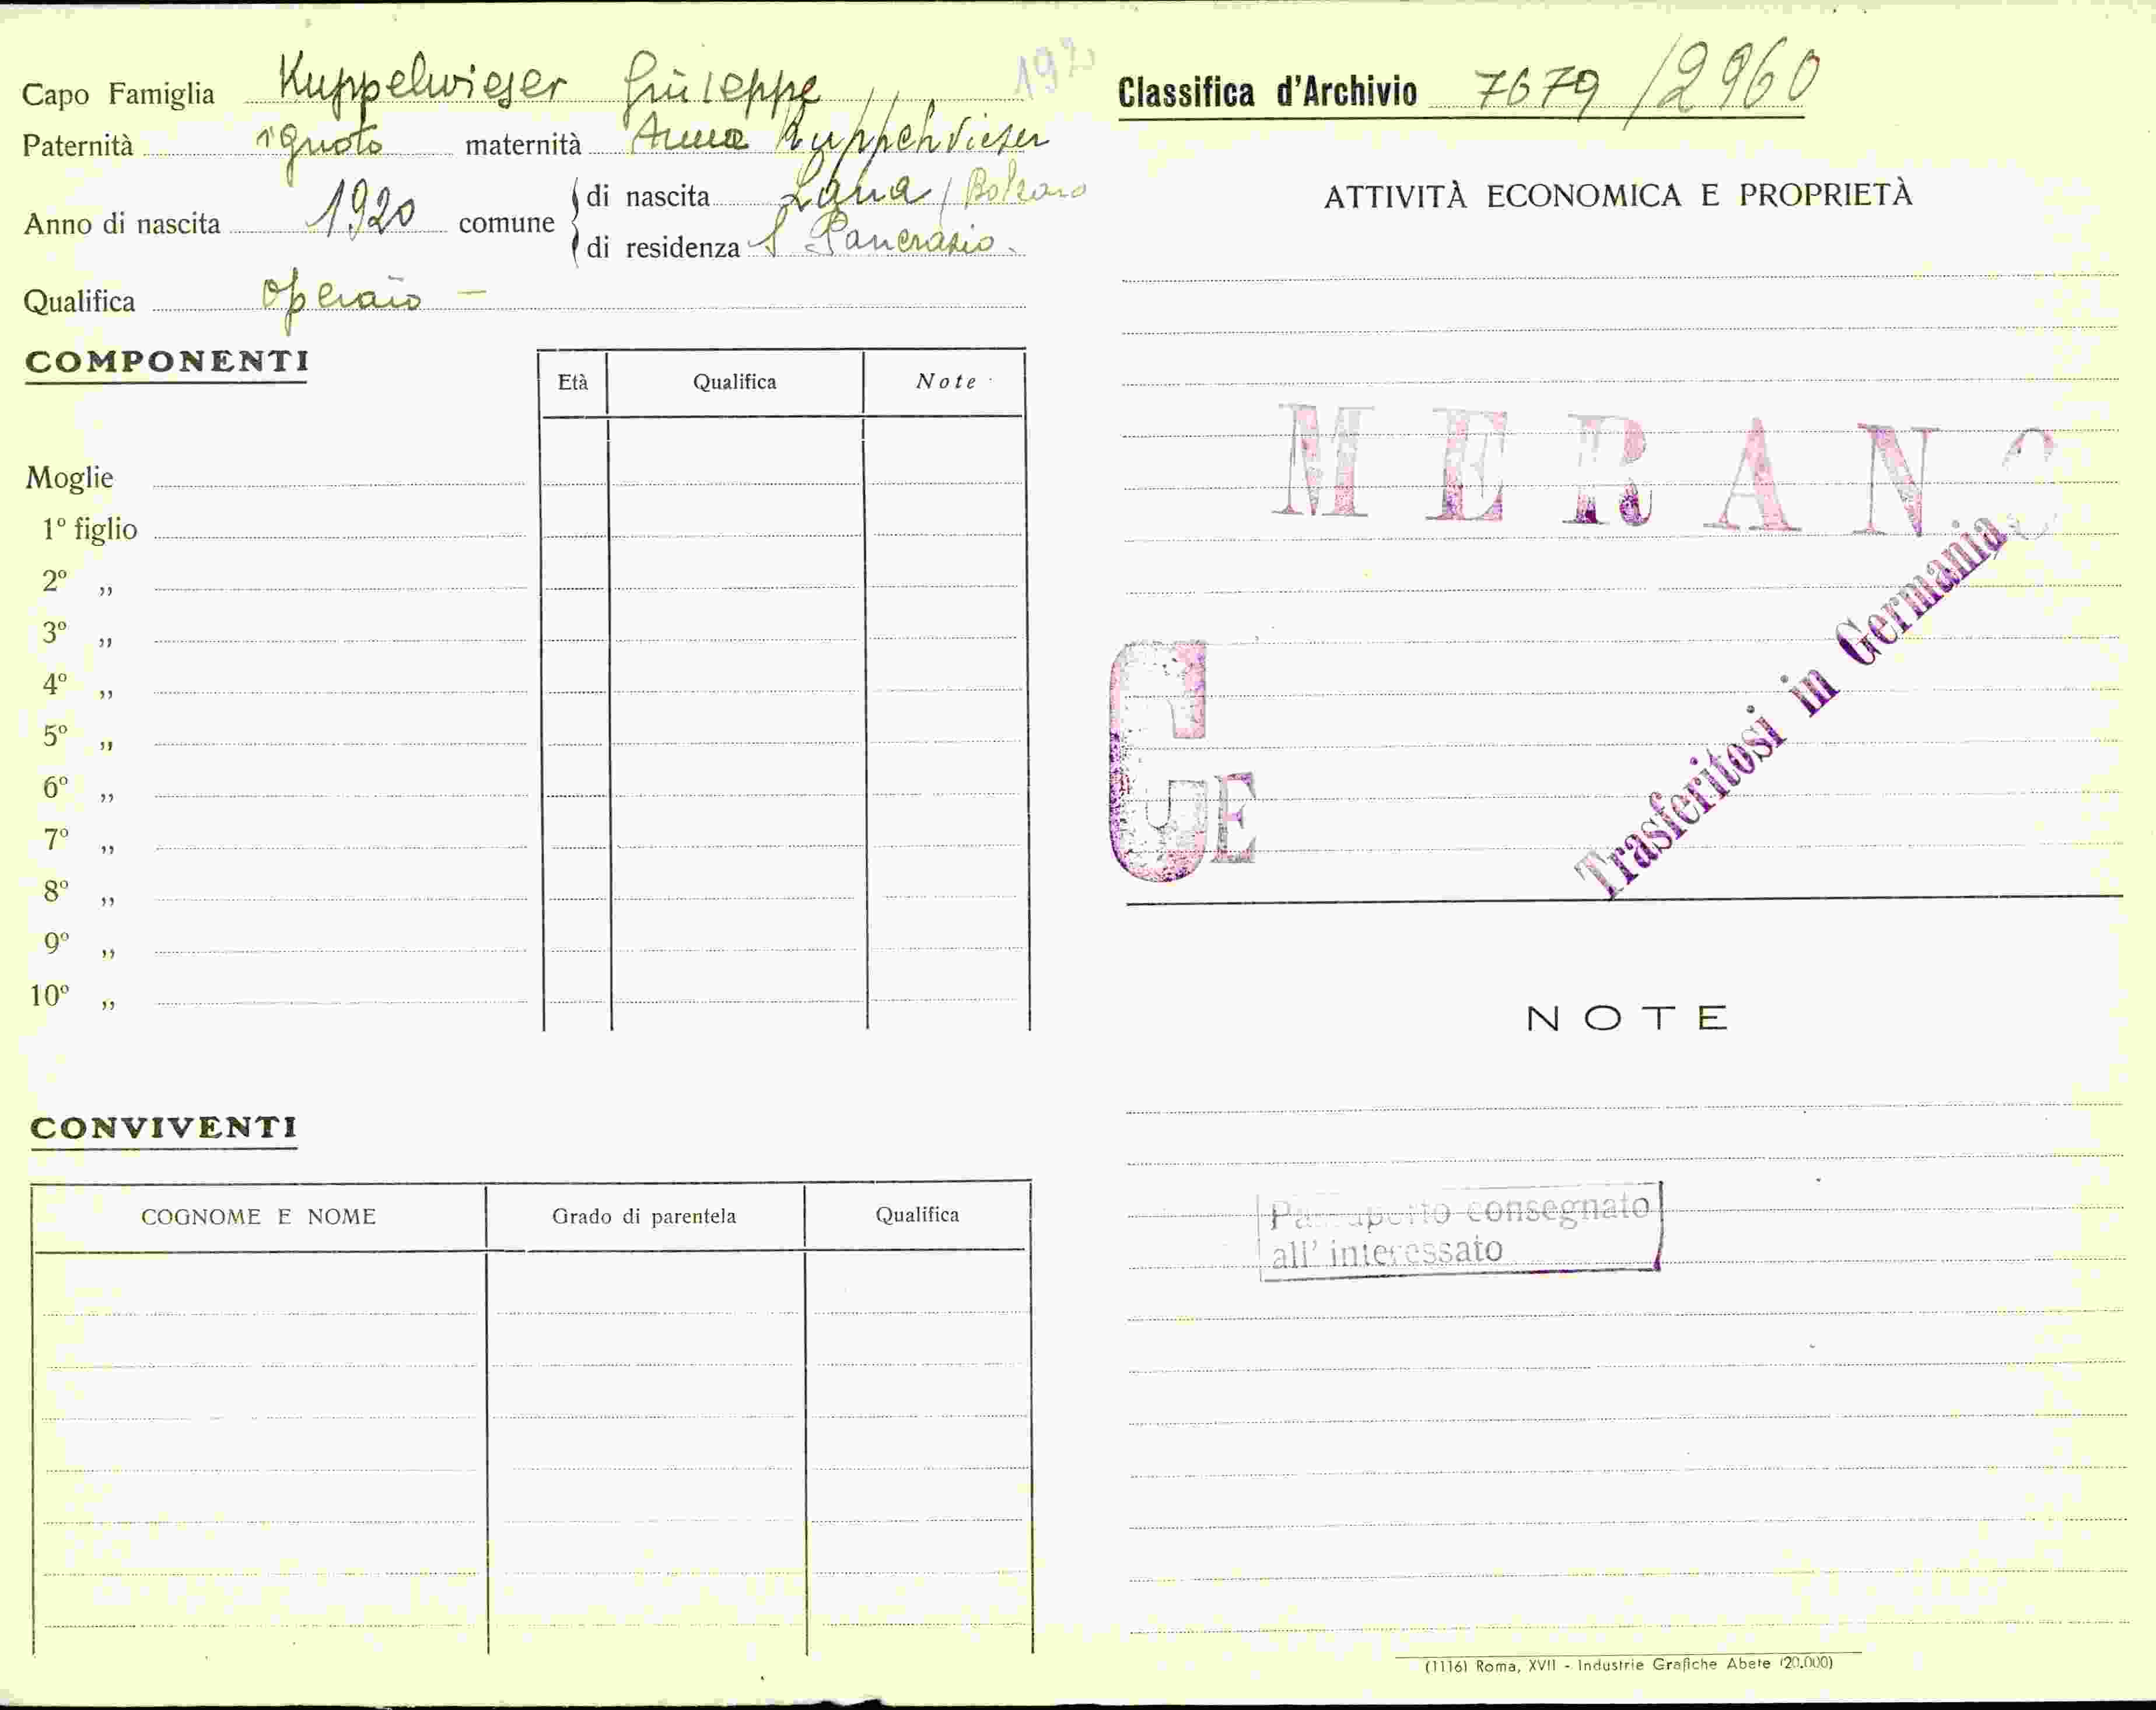 Capo Famiglia Kuppelwieser Giuseppe
Paternità ignoto maternità Anna Kuppelwieser
Anno di nascita 1920 comune di nascita Lana / Bolzano
di residenza S Pancrazio.
Qualifica operaio –
COMPONENTI
Età Qualifica Note
Moglie
1º figlio
2º „
3º „
4º „
5º „
6º „
7º „
8º „
9º „
10º „
CONVIVENTI
COGNOME E NOME Grado di parentela Qualifica
Classifica d'Archivio 7679 / 2960
ATTIVITÀ ECONOMICA E PROPRIETÀ
MERANO
GE
Trasferitosi in Germania
NOTE
Passaporto consegnato
all' interessato
(1116) Roma, XVII - Industrie Grafiche Abete (20.000)